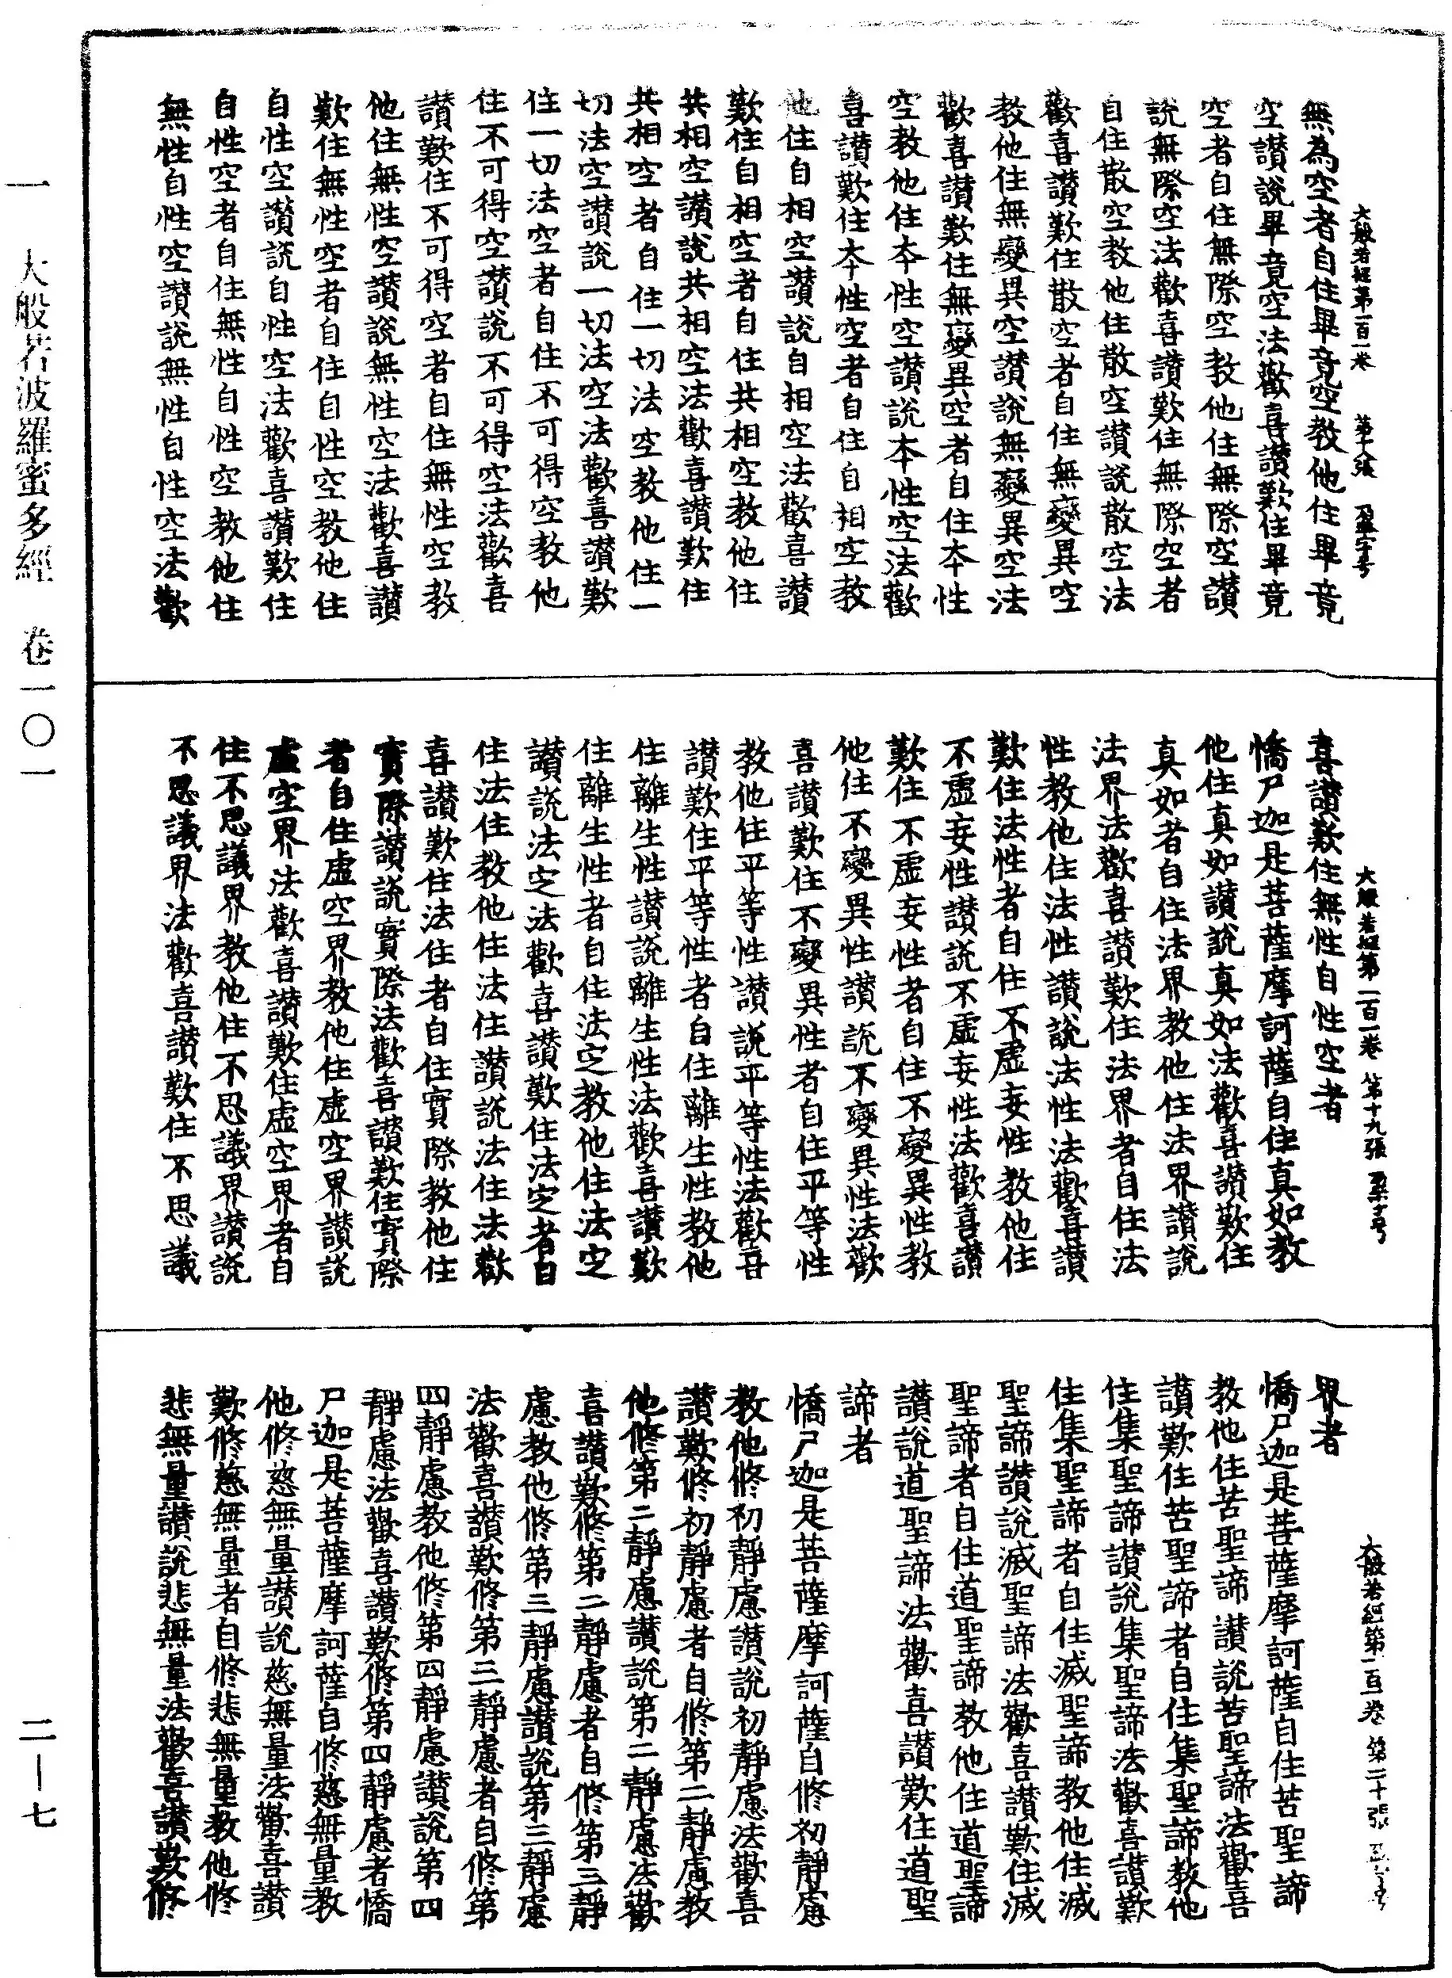 大般若經第一百一卷 第十八張 盈字号
無為空者自住畢竟空教他住畢竟
空讃說畢竟空法歡喜讃歎住畢竟
空者自住無際空教他住無際空讃
說無際空法歡喜讃歎住無際空者
自住散空教他住散空讃說散空法
歡喜讃歎住散空者自住無變異空
教他住無變異空讃說無變異空法
歡喜讃歎住無變異空者自住本性
空教他住本性空讃說本性空法歡
喜讃歎住本性空者自住自相空教
他住自相空讃說自相空法歡喜讃
歎住自相空者自住共相空教他住
共相空讃說共相空法歡喜讃歎住
共相空者自住一切法空教他住一
切法空讃說一切法空法歡喜讃歎
住一切法空者自住不可得空教他
住不可得空讃說不可得空法歡喜
讃歎住不可得空者自住無性空教
他住無性空讃說無性空法歡喜讃
歎住無性空者自住自性空教他住
自性空讃說自性空法歡喜讃歎住
自性空者自住無性自性空教他住
無性自性空讃說無性自性空法歡
大般若經第一百一卷 第十九張 盈字号
喜讃歎住無性自性空者
憍尸迦是菩薩摩訶薩自住真如教
他住真如讃說真如法歡喜讃歎住
真如者自住法界教他住法界讃說
法界法歡喜讃歎住法界者自住法
性教他住法性讃說法性法歡喜讃
歎住法性者自住不虛妄性教他住
不虛妄性讃說不虛妄性法歡喜讃
歎住不虛妄性者自住不變異性教
他住不變異性讃說不變異性法歡
喜讃歎住不變異性者自住平等性
教他住平等性讃說平等性法歡喜
讃歎住平等性者自住離生性教他
住離生性讃說離生性法歡喜讃歎
住離生性者自住法定教他住法定
讃說法定法歡喜讃歎住法定者自
住法住教他住法住讃說法住法歡
喜讃歎住法住者自住實際教他住
實際讃說實際法歡喜讃歎住實際
者自住虛空界教他住虛空界讃說
虛空界法歡喜讃歎住虛空界者自
住不思議界教他住不思議界讃說
不思議界法歡喜讃歎住不思議
大般若經第一百一卷 第二十張 盈字号
界者
憍尸迦是菩薩摩訶薩自住苦聖諦
教他住苦聖諦讃說苦聖諦法歡喜
讃歎住苦聖諦者自住集聖諦教他
住集聖諦讃說集聖諦法歡喜讃歎
住集聖諦者自住滅聖諦教他住滅
聖諦讃說滅聖諦法歡喜讃歎住滅
聖諦者自住道聖諦教他住道聖諦
讃說道聖諦法歡喜讃歎住道聖
諦者
憍尸迦是菩薩摩訶薩自修初靜慮
教他修初靜慮讃說初靜慮法歡喜
讃歎修初靜慮者自修第二靜慮教
他修第二靜慮讃說第二靜慮法歡
喜讃歎修第二靜慮者自修第三靜
慮教他修第三靜慮讃說第三靜慮
法歡喜讃歎修第三靜慮者自修第
四靜慮教他修第四靜慮讃說第四
靜慮法歡喜讃歎修第四靜慮者憍
尸迦是菩薩摩訶薩自修慈無量教
他修慈無量讃說慈無量法歡喜讃
歎修慈無量者自修悲無量教他修
悲無量讃說悲無量法歡喜讃歎修
一 大般若波羅蜜多經 卷一〇一
二—七